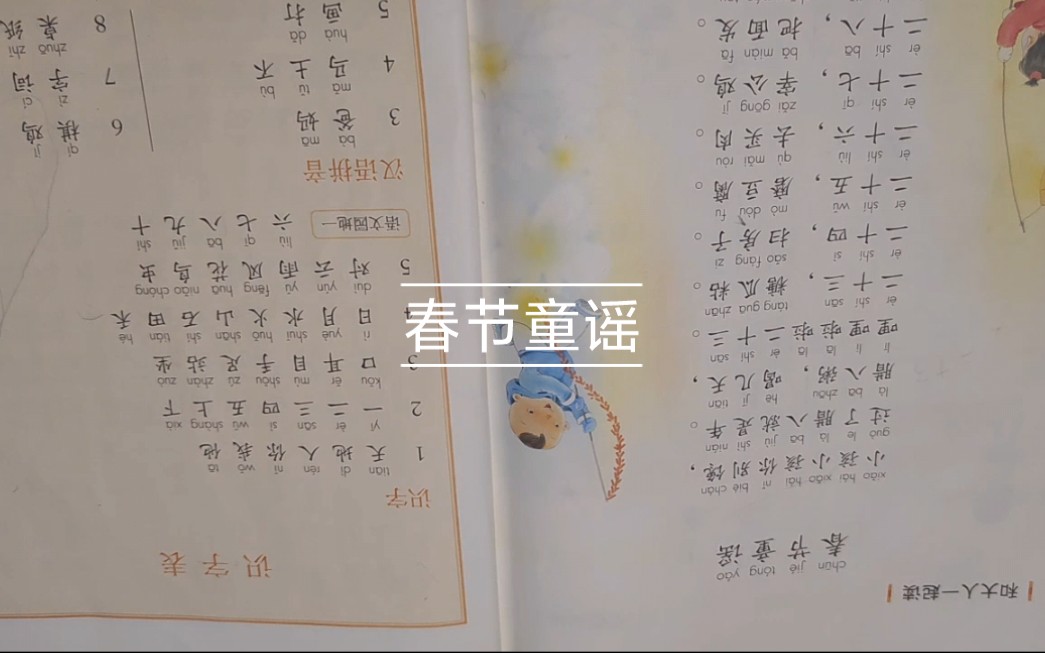 春节童谣
和大人一起读
chūn jié tóng yáo
春节童谣
xiǎo hái xiǎo hái nǐ bié chán
小孩小孩你别馋，
guò le là bā jiù shì nián
过了腊八就是年。
là bā zhōu hē jǐ tiān
腊八粥，喝几天，
lī lī lā lā èr shí sān
哩哩啦啦二十三。
èr shí sān táng guā zhān
二十三，糖瓜粘。
èr shí sì sǎo fáng zi
二十四，扫房子。
èr shí wǔ mò dòu fu
二十五，磨豆腐。
èr shí liù qù mǎi ròu
二十六，去买肉。
èr shí qī zǎi gōng jī
二十七，宰公鸡。
èr shí bā bǎ miàn fā
二十八，把面发。
识字表
识字
tiān dì rén nǐ wǒ tā
1 天地人你我他
yī èr sān sì wǔ shàng xià
2 一二三四五上下
kǒu ěr mù shǒu zú zhàn zuò
3 口耳目手足站坐
rì yuè shuǐ huǒ shān shí tián hé
4 日月水火山石田禾
duì yún yǔ fēng huā niǎo chóng
5 对云雨风花鸟虫
liù qī bā jiǔ shí
语文园地一 六七八九十
汉语拼音
bà mā
3 爸妈
mǎ tǔ bù
4 马土不
huà dǎ
5 画打
qí jī
6 棋鸡
zì cí
7 字词
zhuō zhǐ
8 桌纸